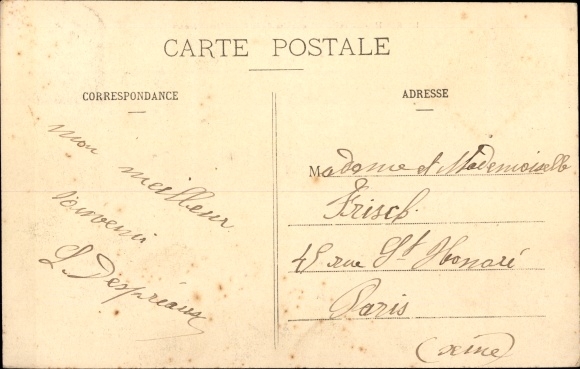 CARTE POSTALE
CORRESPONDANCE
mon meilleur
souvenir
L Despréaux
ADRESSE
Madame et Mademoiselle
Frisch
45 rue St Honoré
Paris
(Seine)